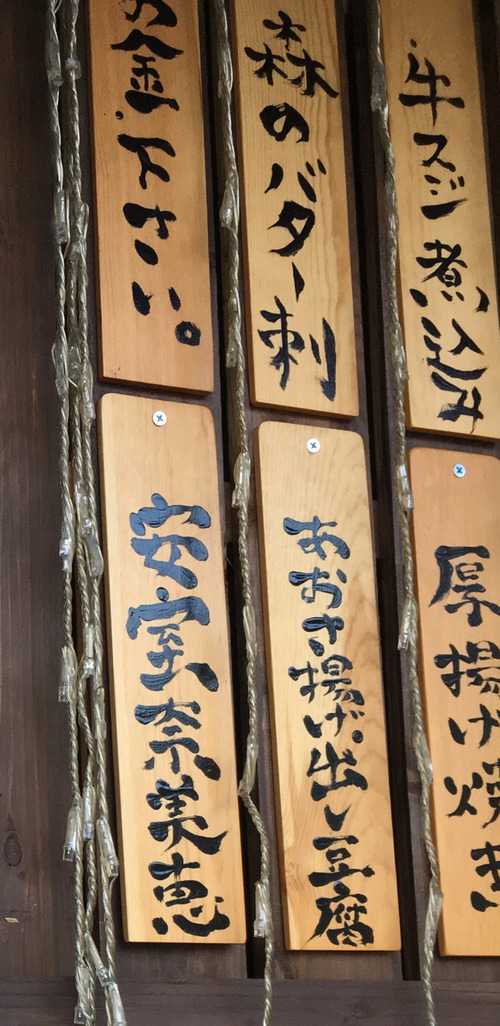 牛スジ煮込み
森のバター刺
お金下さい。
厚揚げ焼き
あおさ揚げ出し豆腐
安室奈美恵